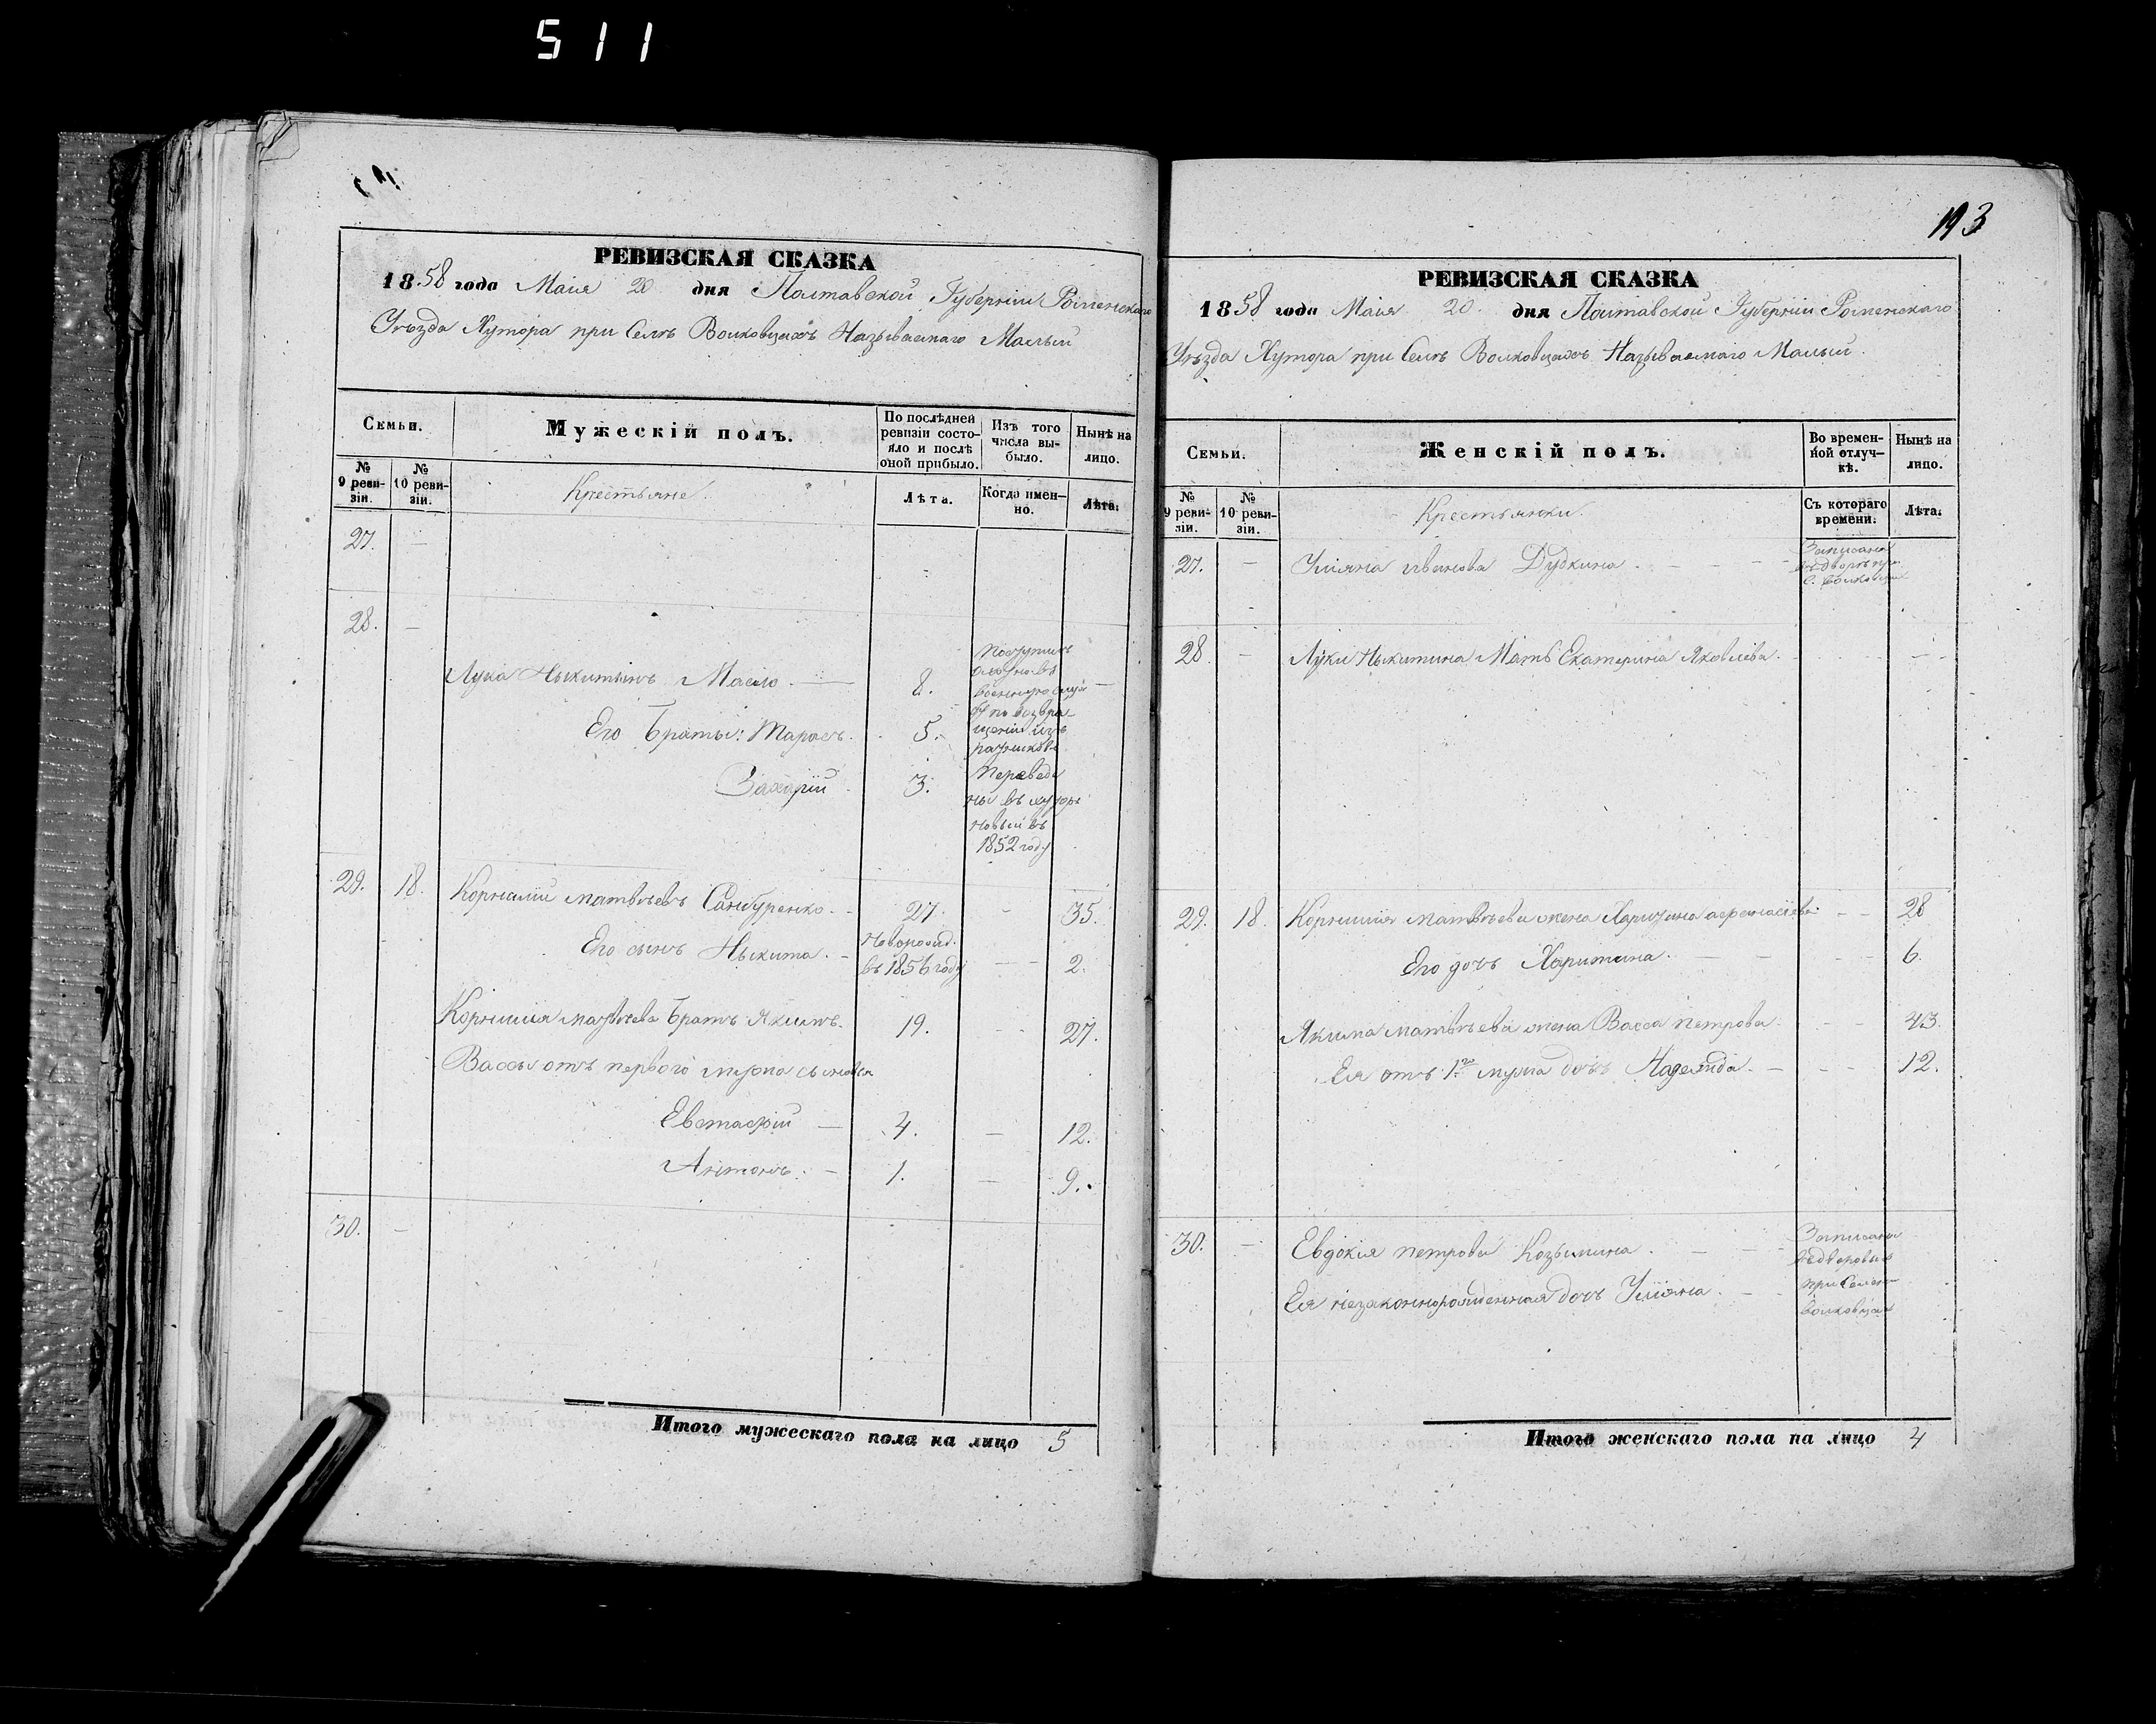 511
РЕВИЗСКАЯ СКАЗКА
1858 года Маія 20 дня Полтавской Губерніи Роменскаго
Уѣзда Хутора при Селѣ Волковцахъ Называемаго Малый
Семьи.
Мужескій полъ.
По послѣдней ревизіи состояло и послѣ оной прибыло.
Изъ того числа выбыло.
Нынѣ на лицо.
№ 9 ревизіи.
№ 10 ревизіи.
Крестьяне.
Лѣта.
Когда именно.
Лѣта.
27. —
28. —
Лука Ныкитинъ Масло — 8. —
Его Братьи: Тарасъ. 5.
Захарій 3.
Поступилъ
военную
по возвра-
щеніи изъ
Переведе
ны въ хуторъ
Новый въ
1852 году
29. 18. Корнилій Матвѣевъ Самбуренко. 27. - 35.
Его сынъ Ныкита. - Новорожд. въ 1856 году — 2.
Корнилія Матвѣева Братъ Якимъ. 19. - 27.
Вассы отъ перваго мужа сыновья
Евстафій — 4. — 12.
Антонъ. — 1. — 9.
30. —
Итого мужескаго пола на лицо 5
193
РЕВИЗСКАЯ СКАЗКА
1858 года Маія 20. дня Полтавской Губерніи Роменскаго
Уѣзда Хутора при Селѣ Волковцахъ Называемаго Малый.
Семьи.
Женскій полъ.
Во временной отлучкѣ.
Нынѣ на лицо.
№ 9 ревизіи.
№ 10 ревизіи.
Крестьянки.
Съ котораго времени.
Лѣта.
27. — Уліяна Иванова Дудкина.
Записана
28 — Луки Ныкитина Мать Екатерина Яковлева.
29. 18. Корнилія Матвѣева жена Харитина Афанасіева — 28
Его дочь Харитина. — 6.
Якима Матвѣева жена Васса Петрова. — 43.
Ея отъ 1го мужа дочь Надежда. — 12.
30. — Евдокія Петрова Козьмина.
Ея незаконнорожденная дочь Уліяна.
Записаны
въ дворовые
при Селе
Волковцах
Итого женскаго пола на лицо 4